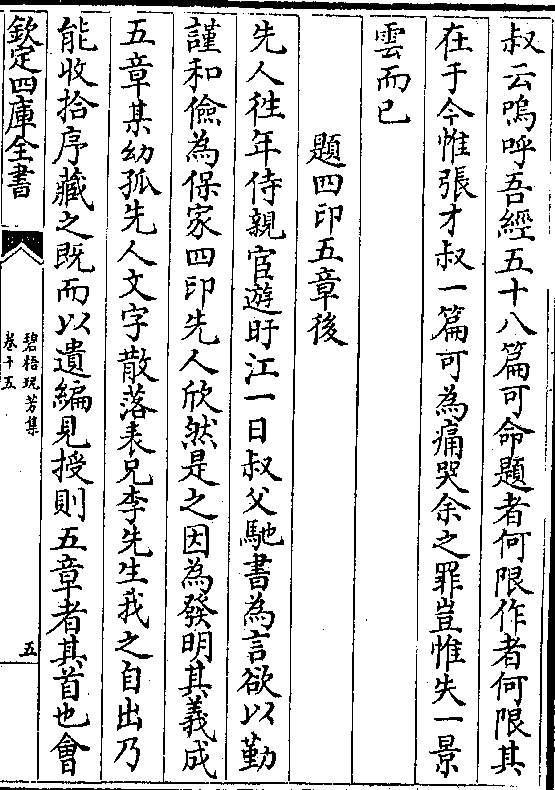 叔云嗚呼吾經五十八篇可命題者何限作者何限其
在于今惟張才叔一篇可為痛哭余之罪豈惟失一景
雲而已
題四印五章後
先人徃年侍親官遊盱江一日叔父馳書為言欲以勤
謹和儉為保家四印先人欣然是之因為發明其義成
五章某幼孤先人文字散落表兄李先生我之自出乃
能收拾序藏之既而以遺編見授則五章者其首也會
欽定四庫全書
碧梧玩芳集
卷十五
五